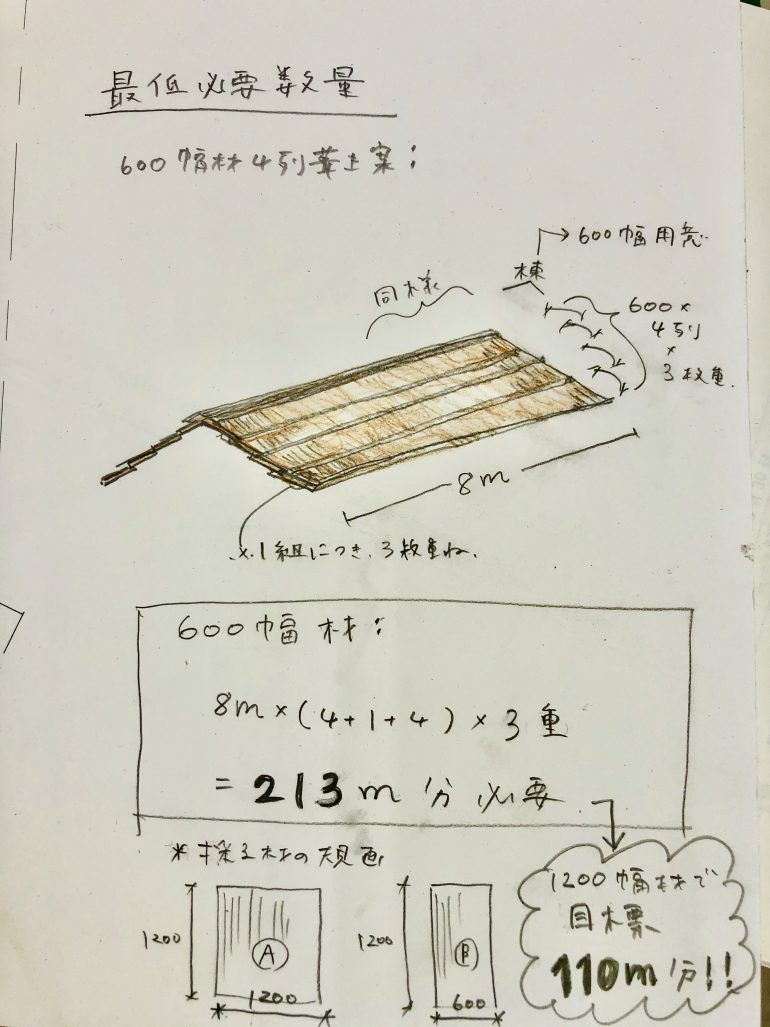 最低必要数量
600幅材4列葺き案:
→600幅用意
棟
同様
600×
4列
×
3枚重
8m
※1組につき、3枚重ね、
600幅材:
8m×(4+1+4)×3重
=213m分必要
*採る材の規画
1200幅材で
目標
110m分!!
1200
A
1200
1200
B
600